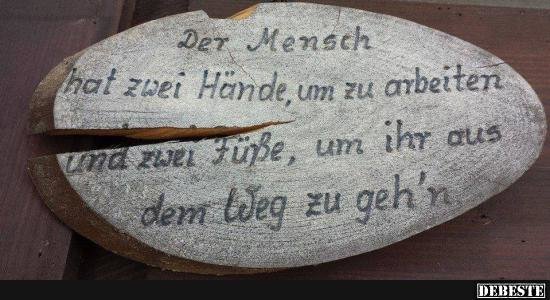 Der Mensch
hat zwei Hände, um zu arbeiten
und zwei Füße, um ihr aus
dem Weg zu geh'n
DEBESTE